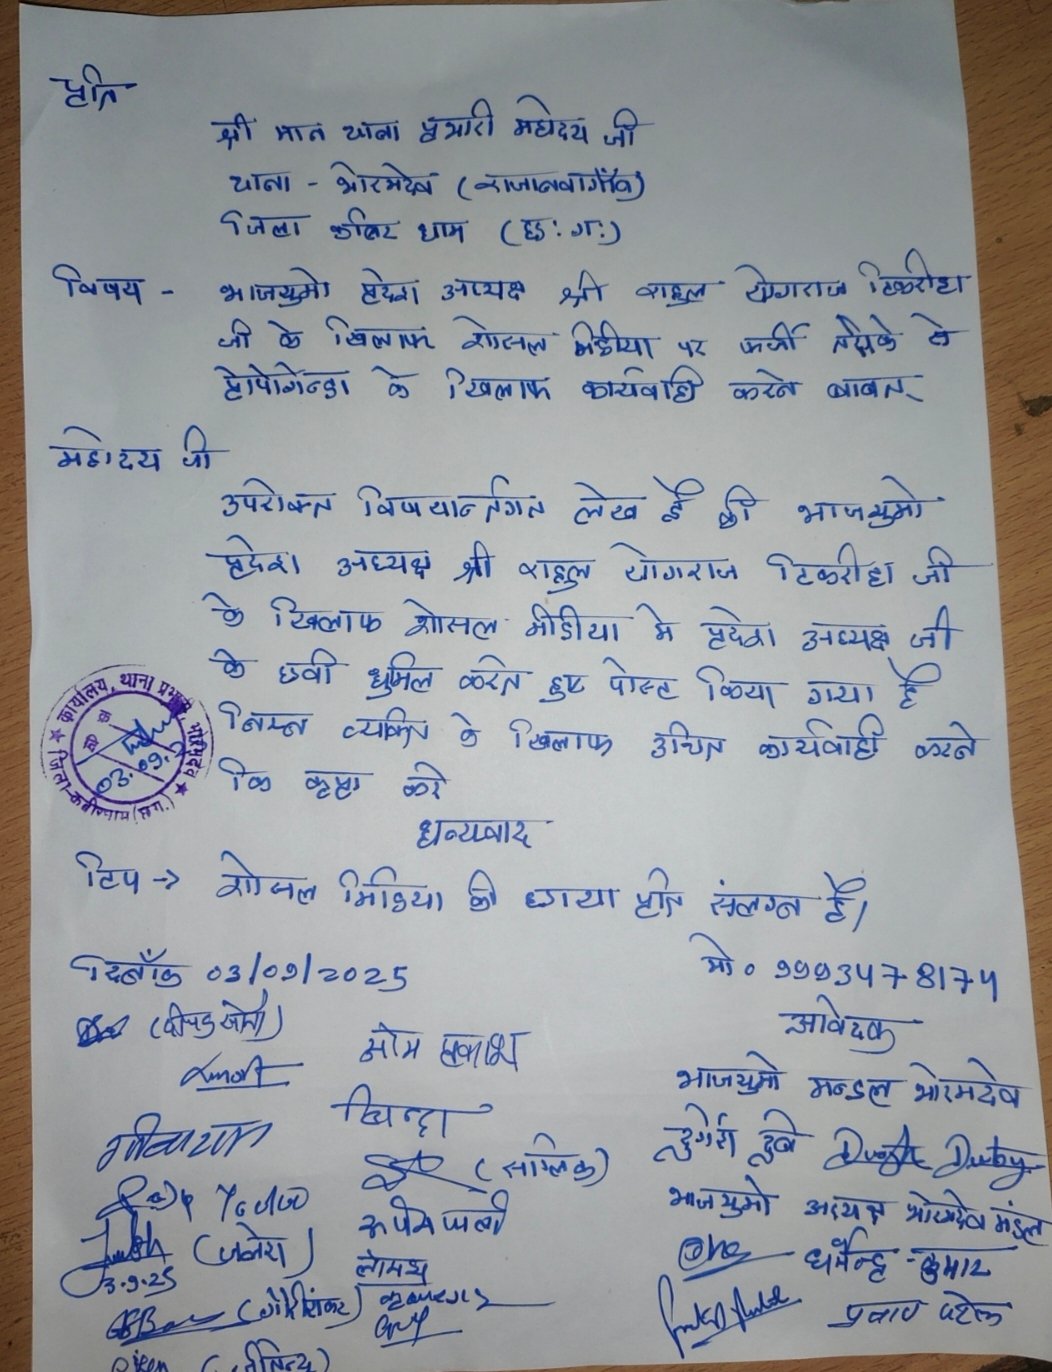 प्रति
श्री मान थाना प्रभारी महोदय जी
थाना - भोरमदेव (राजानवागाँव)
जिला कबिर धाम (छ:ग:)
विषय - भाजयुमो प्रदेश अध्यक्ष श्री राहुल योगराज टिकरीहा
जी के खिलाफ शोसल मीडीया पर फर्जी तरीके से
प्रोपोगेन्डा के खिलाफ कार्यवाही करने बाबत्
महोदय जी
उपरोक्त विषयान्र्तगत लेख है की भाजयुमो
प्रदेश अध्यक्ष श्री राहुल योगराज टिकरीहा जी
के खिलाफ शोसल मीडीया मे प्रदेश अध्यक्ष जी
के छवी धुमिल करते हुए पोस्ट किया गया है
निम्न व्यक्ति के खिलाफ उचित कार्यवाही करने
कि कृपा करे
कार्यालय, थाना प्रभारी, भोरमदेव
जिला-कबीरधाम (छग.)
03.09.
धन्यवाद
टिप → शोसल मिडिया की छाया प्रति संलग्न है।
दिनाँक 03/09/2025
मो० 9993478174
आवेदक
भाजयुमो मन्डल भोरमदेव
दुर्गेश दुबे
भाजयुमो अध्यक्ष भोरमदेव मंडल
धर्मेन्द्र - कुमार
प्रताप पटेल
ओम प्रकाश
(सात्विक)
(जलेश)
3.9.25
लोमश
(गौरीशंकर)